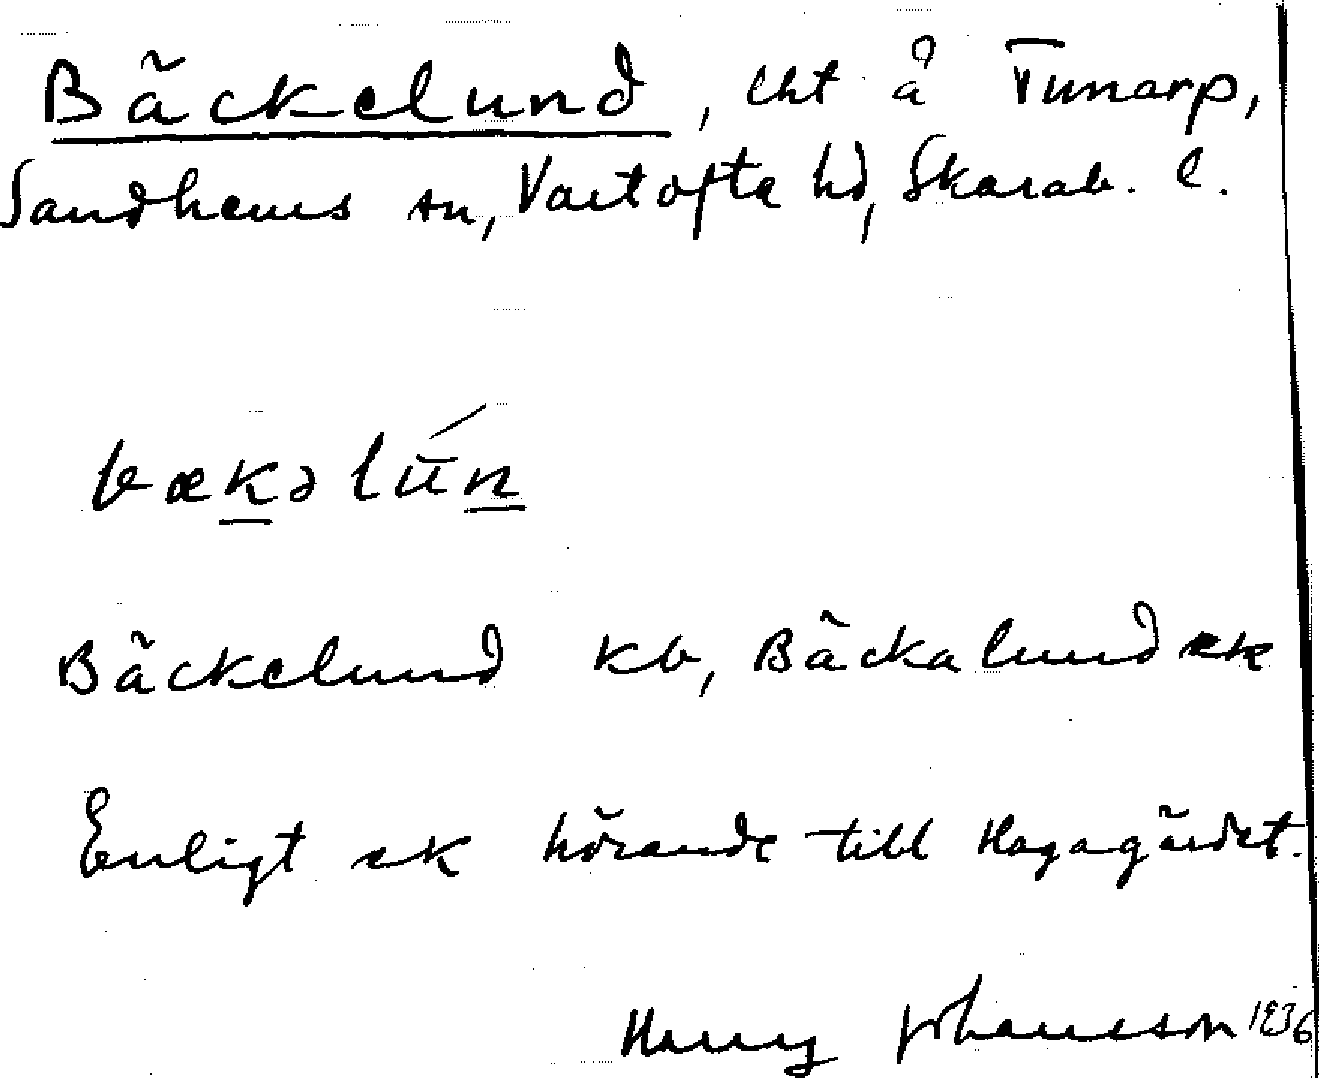 Bäckelund, lht å Tunarp,
Sandhems sn, Vartofta hd, Skarab. l.
bækəlún
Bäckelund kb, Bäckalund ek
Enligt ek hörande till Hagagärdet.
Harry Johansson 1936